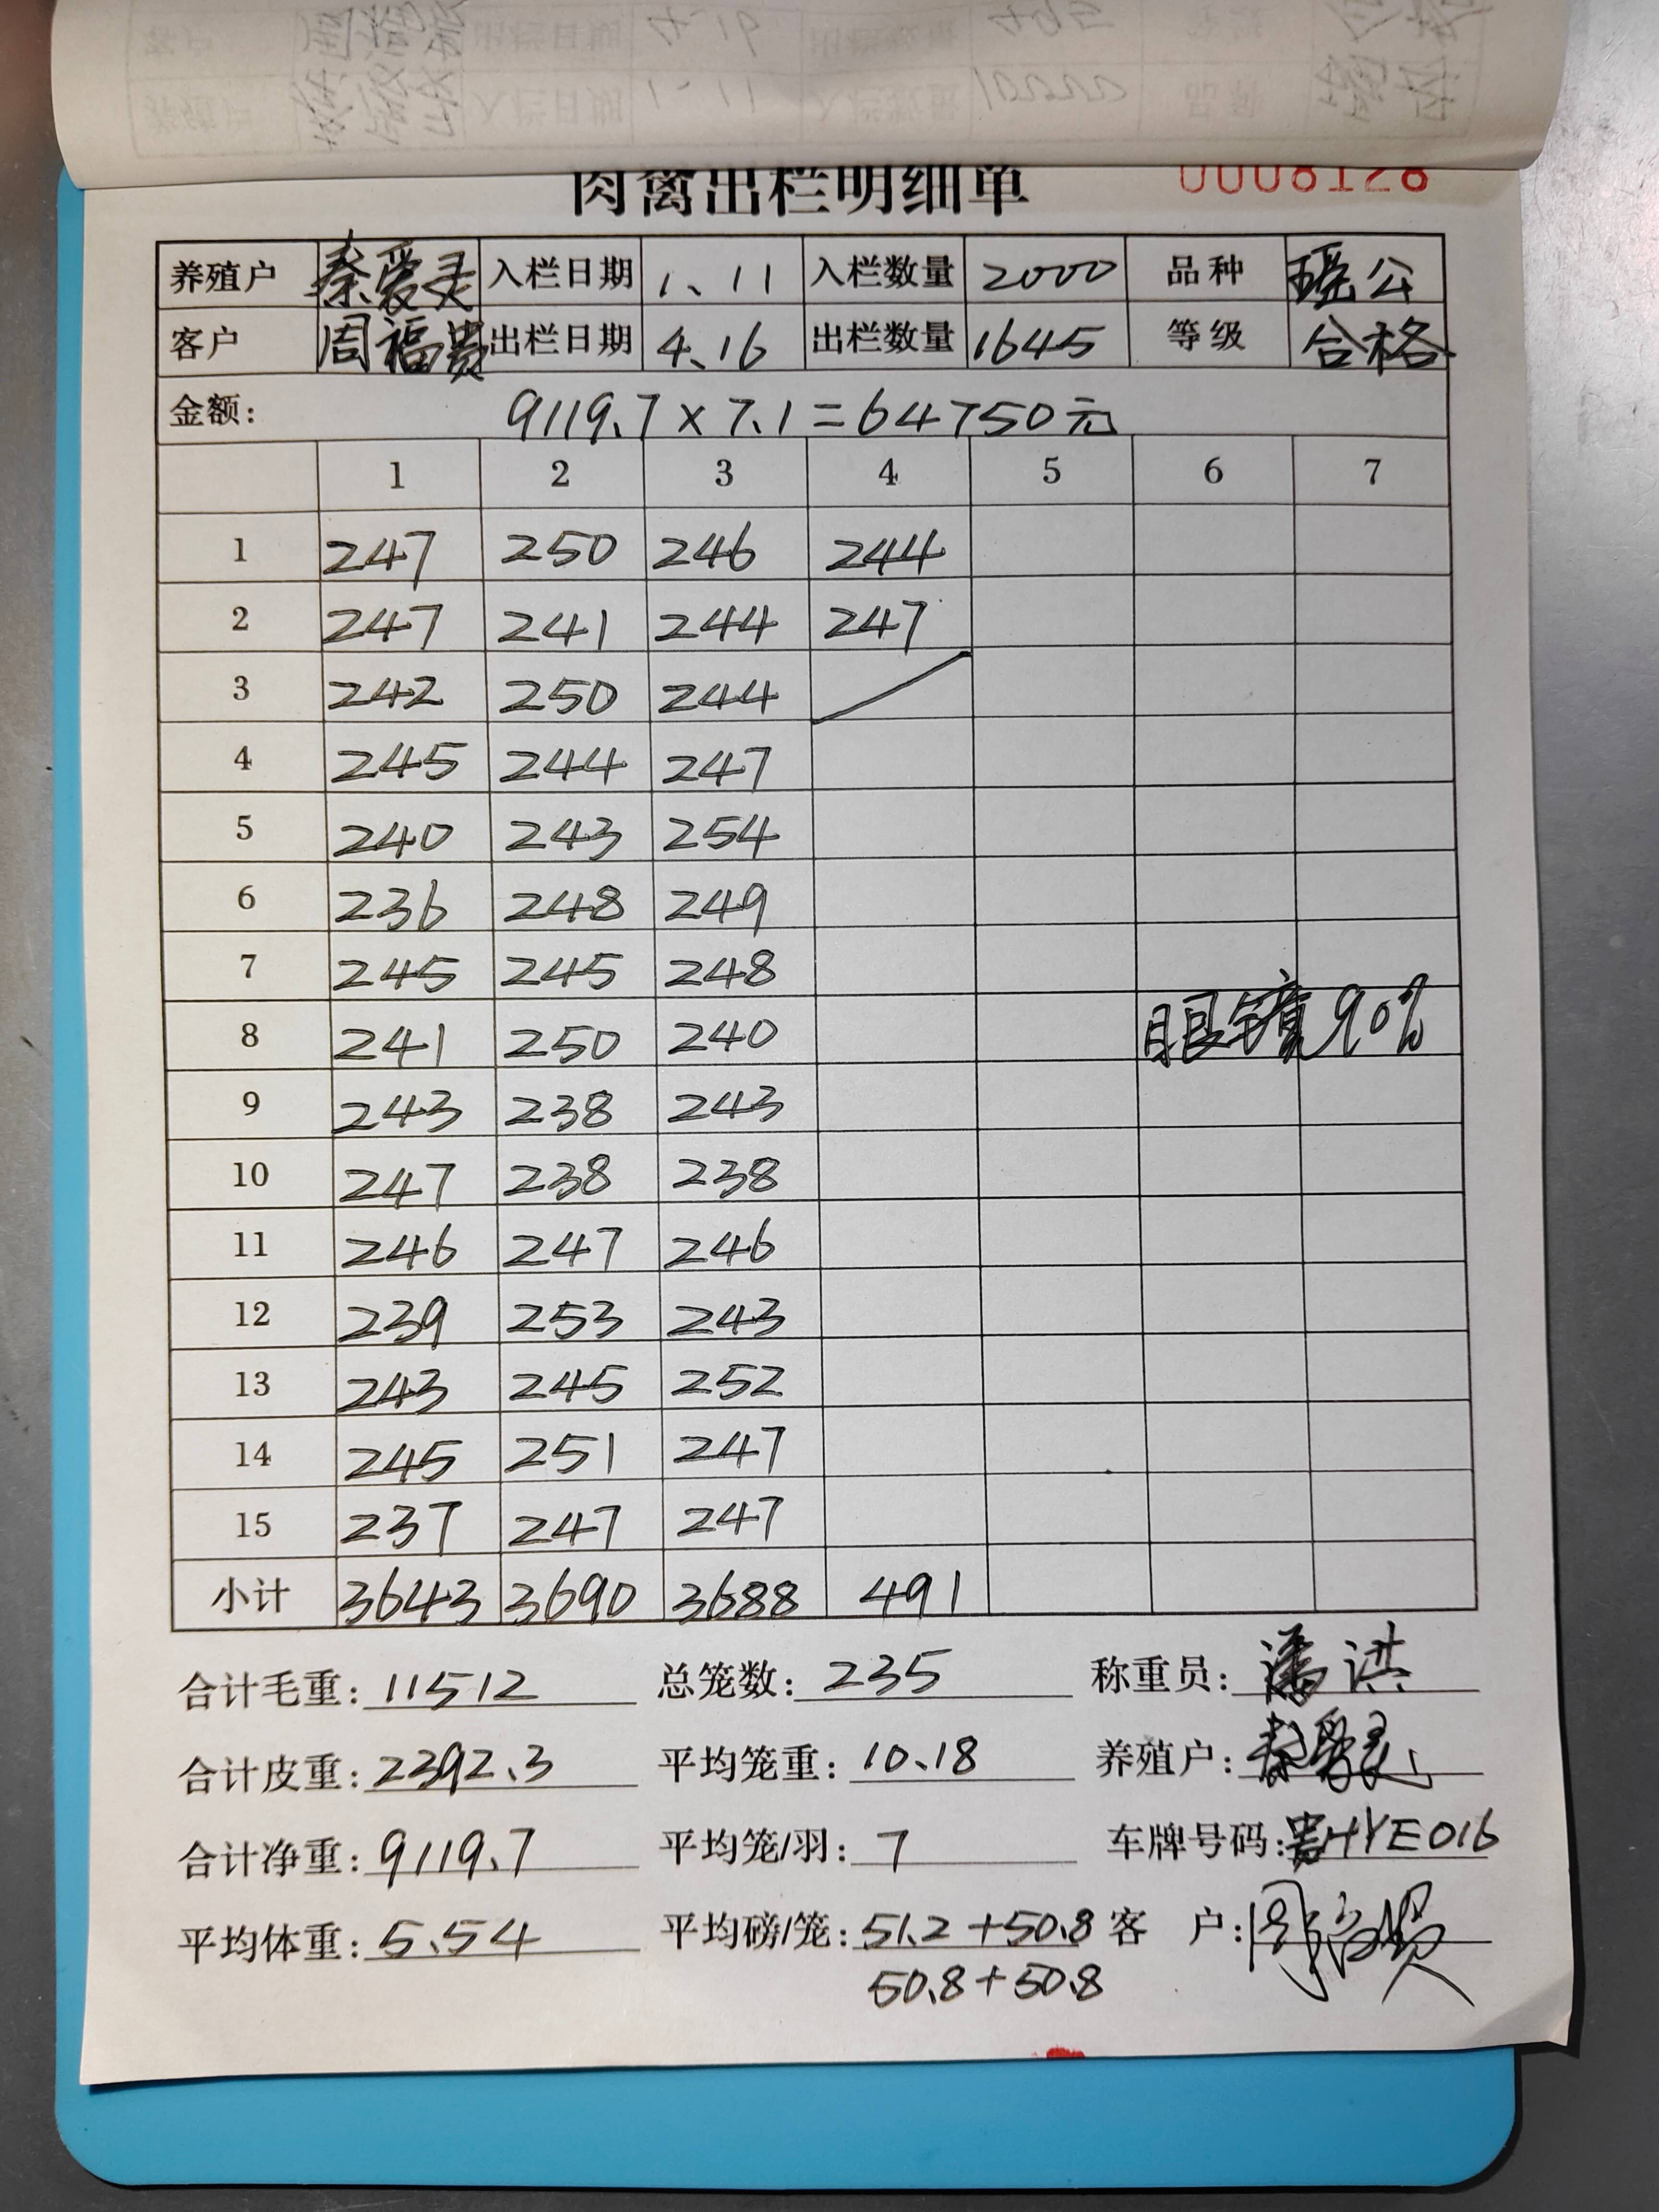 肉禽出栏明细单 0008128
养殖户 秦爱灵 入栏日期 1、11 入栏数量 2000 品种 瑶公
客户 周福贵 出栏日期 4、16 出栏数量 1645 等级 合格
金额: 9119.7×7.1=64750元
1 2 3 4 5 6 7
1 247 250 246 244
2 247 241 244 247
3 242 250 244
4 245 244 247
5 240 243 254
6 236 248 249
7 245 245 248
8 241 250 240 眼镜90%
9 243 238 243
10 247 238 238
11 246 247 246
12 239 253 243
13 243 245 252
14 245 251 247
15 237 247 247
小计 3643 3690 3688 491
合计毛重: 11512 总笼数: 235 称重员: 潘洪
合计皮重: 2392.3 平均笼重: 10.18 养殖户: 秦爱灵
合计净重: 9119.7 平均笼/羽: 7 车牌号码: 贵HYE016
平均体重: 5.54 平均磅/笼: 51.2+50.8 客 户: 周福贵
50.8+50.8